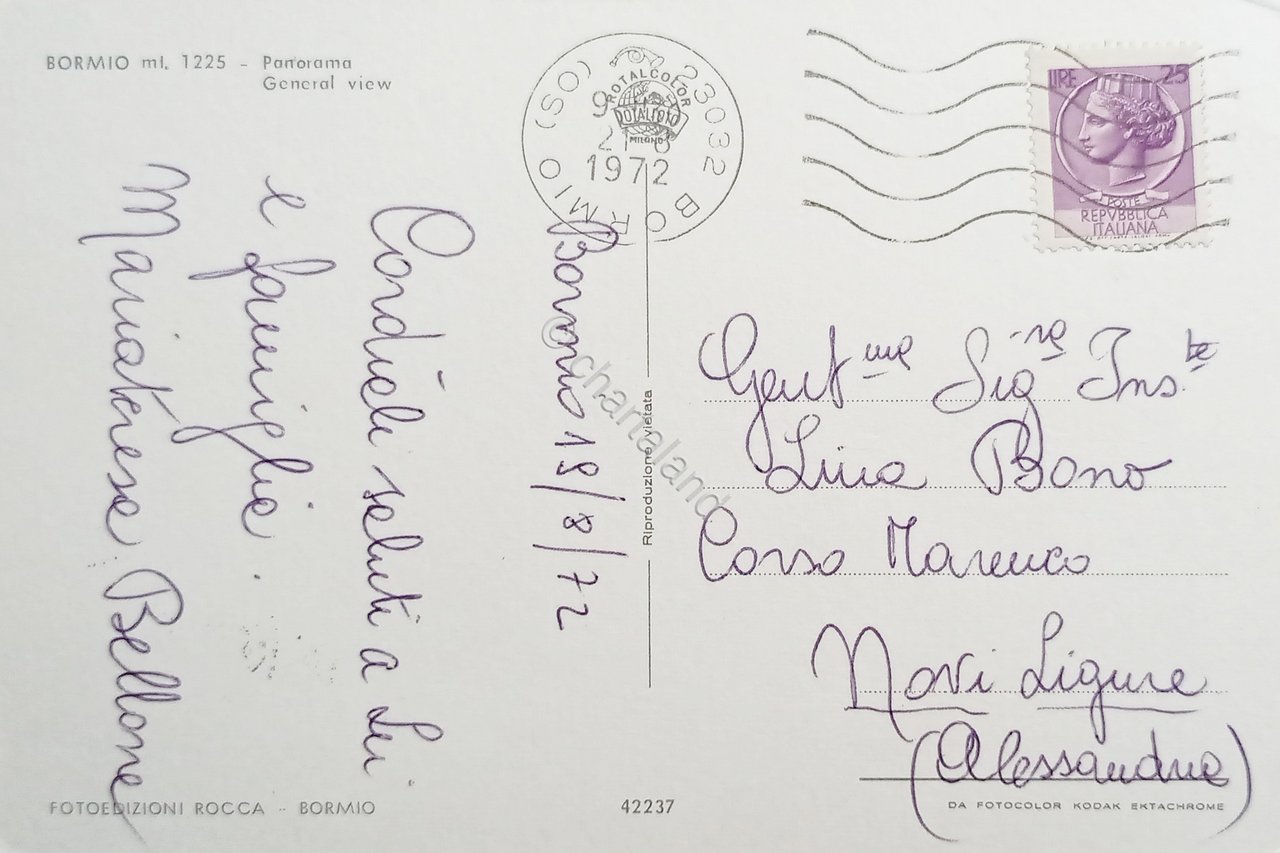 BORMIO mt. 1225 - Panorama
General view
23032 BORMIO (SO)
9
21-8
1972
ROTALCOLOR
ROTALFOTO
MILANO
LIRE 25
POSTE
REPVBBLICA
ITALIANA
Bormio 19/8/72
Cordiali saluti a Lei
e famiglia.
Mariateresa Bellone
Gent.ma Sig.ra Ins.te
Lina Bono
Corso Marenco
Novi Ligure
(Alessandria)
Riproduzione vietata
© chartaland
FOTOEDIZIONI ROCCA - BORMIO
42237
DA FOTOCOLOR KODAK EKTACHROME